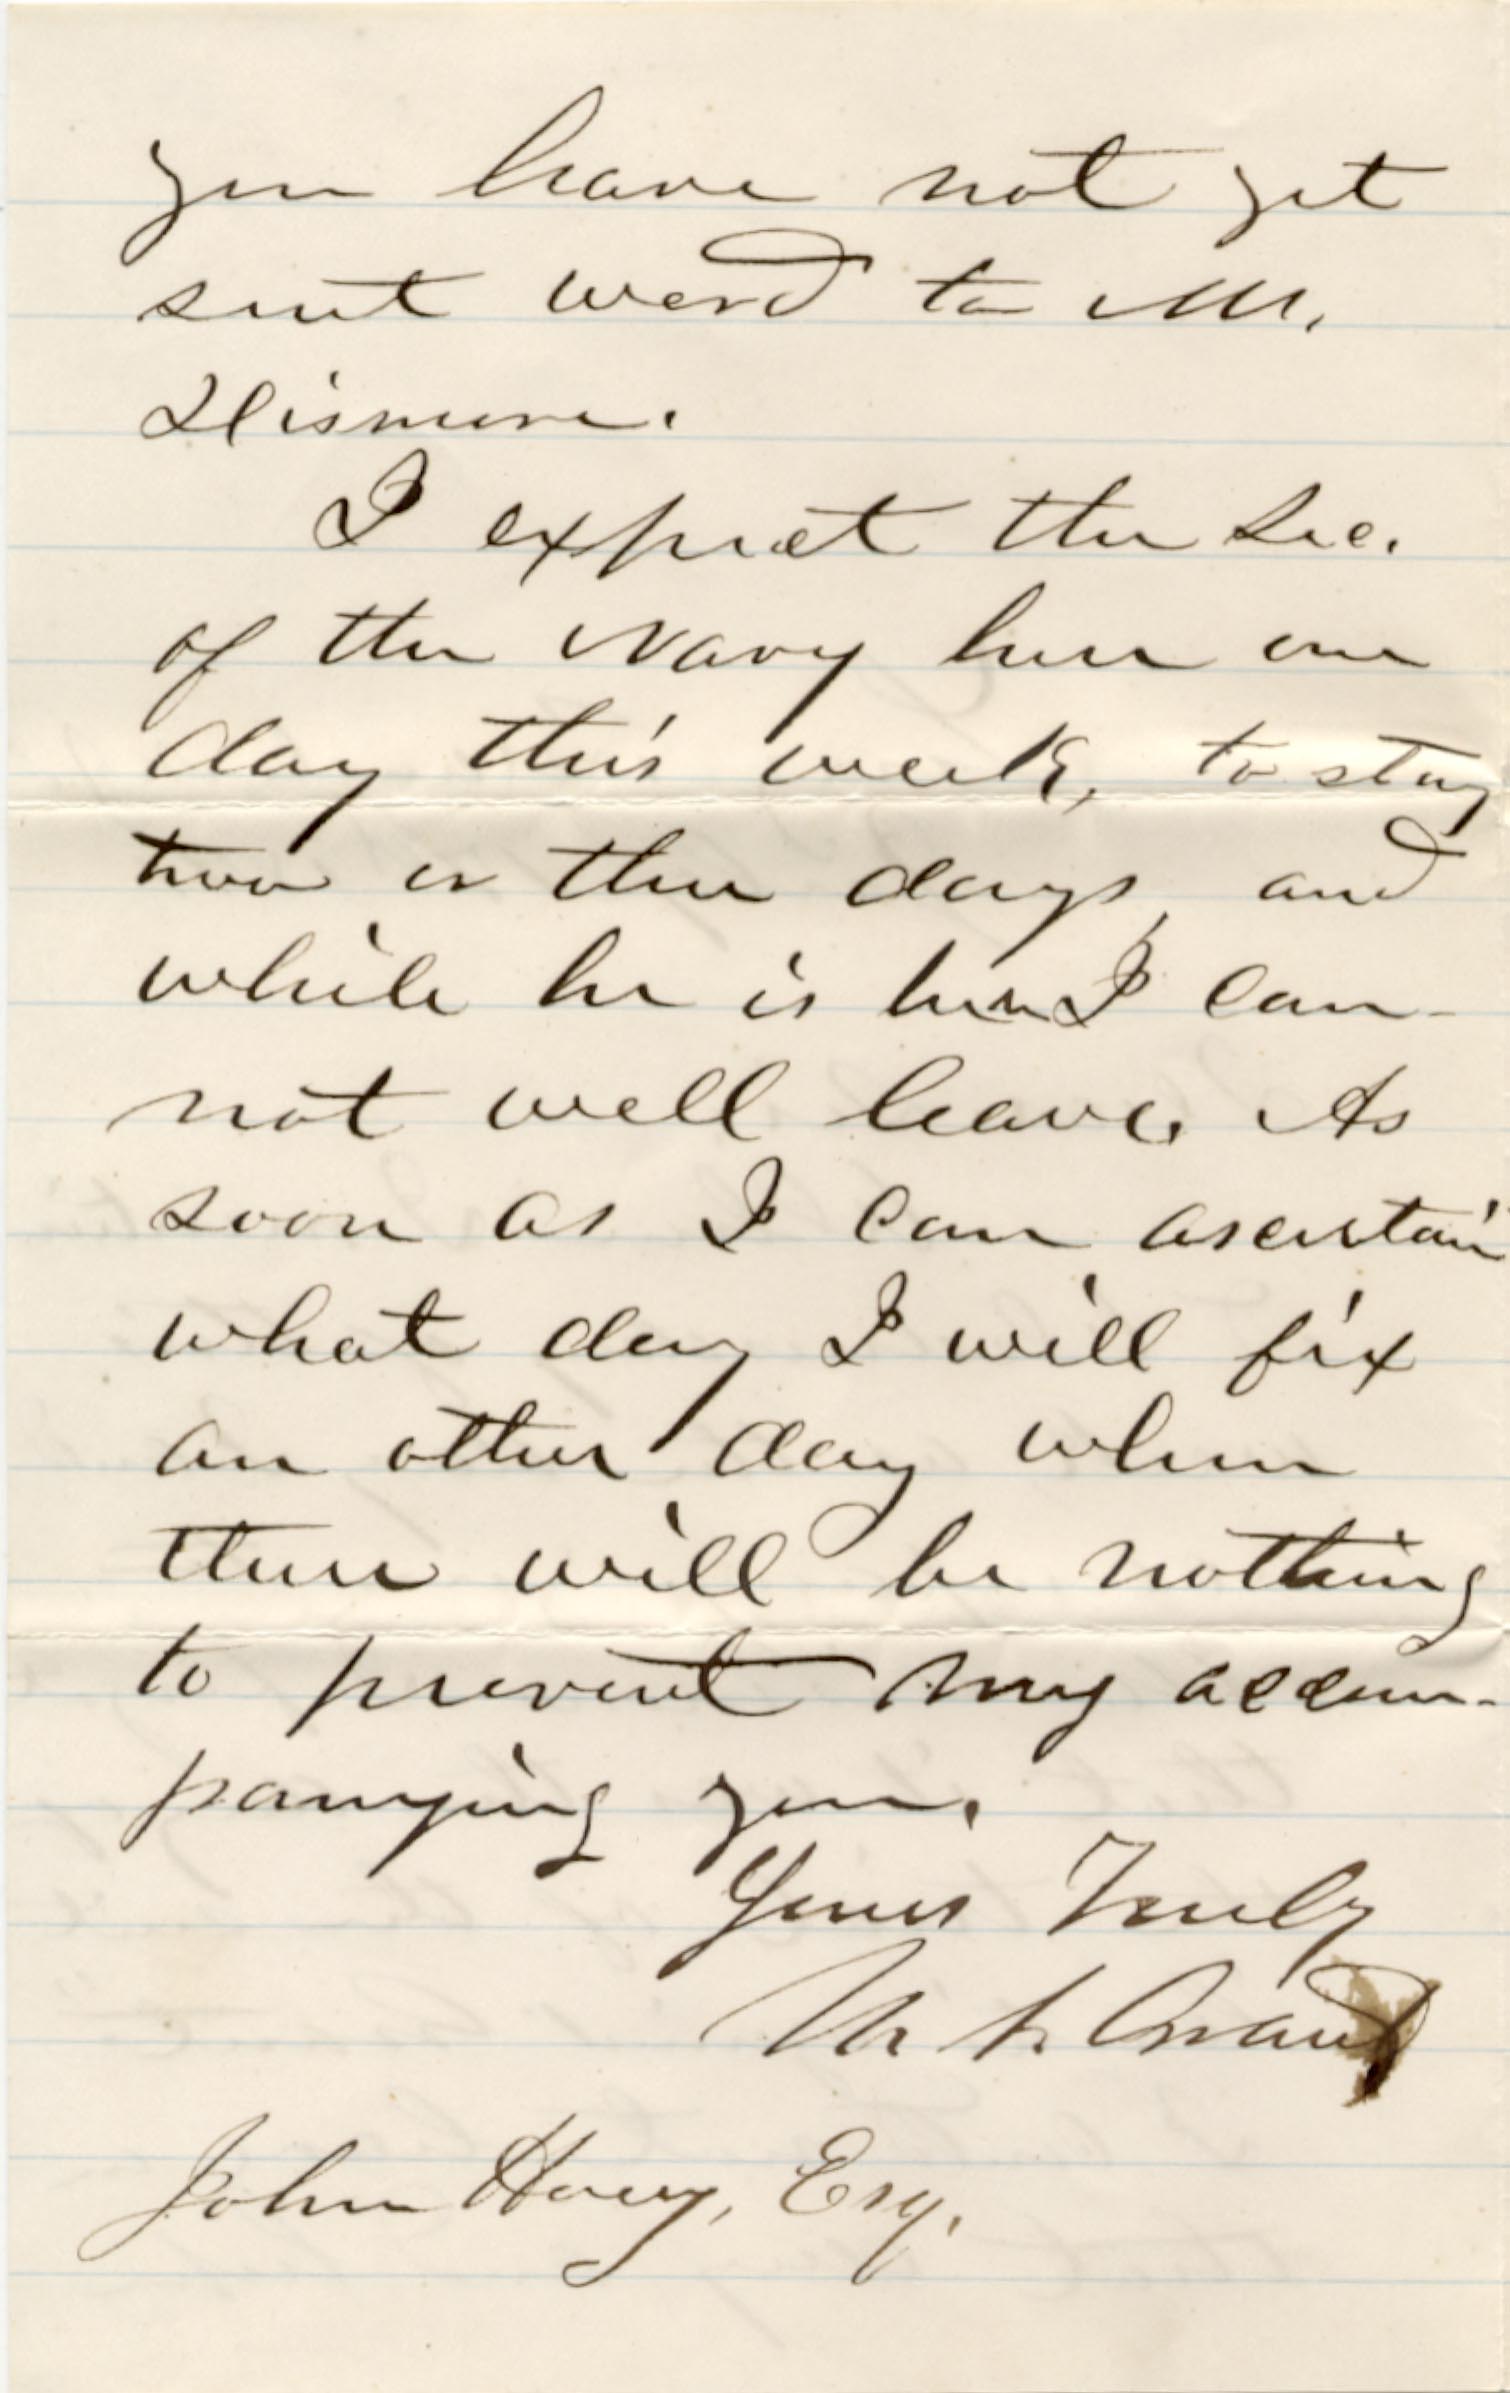 you have not yet
sent word to Mr.
Dismore.
I expect the Sec.
of the Navy here one
day this week, to stay
two or three days, and
while he is here I can-
not well leave. As
soon as I can ascertain
what day I will fix
an other day when
there will be nothing
to prevent my accom-
panying you.
Yours Truly
U. S. Grant
John Hoey, Esq.